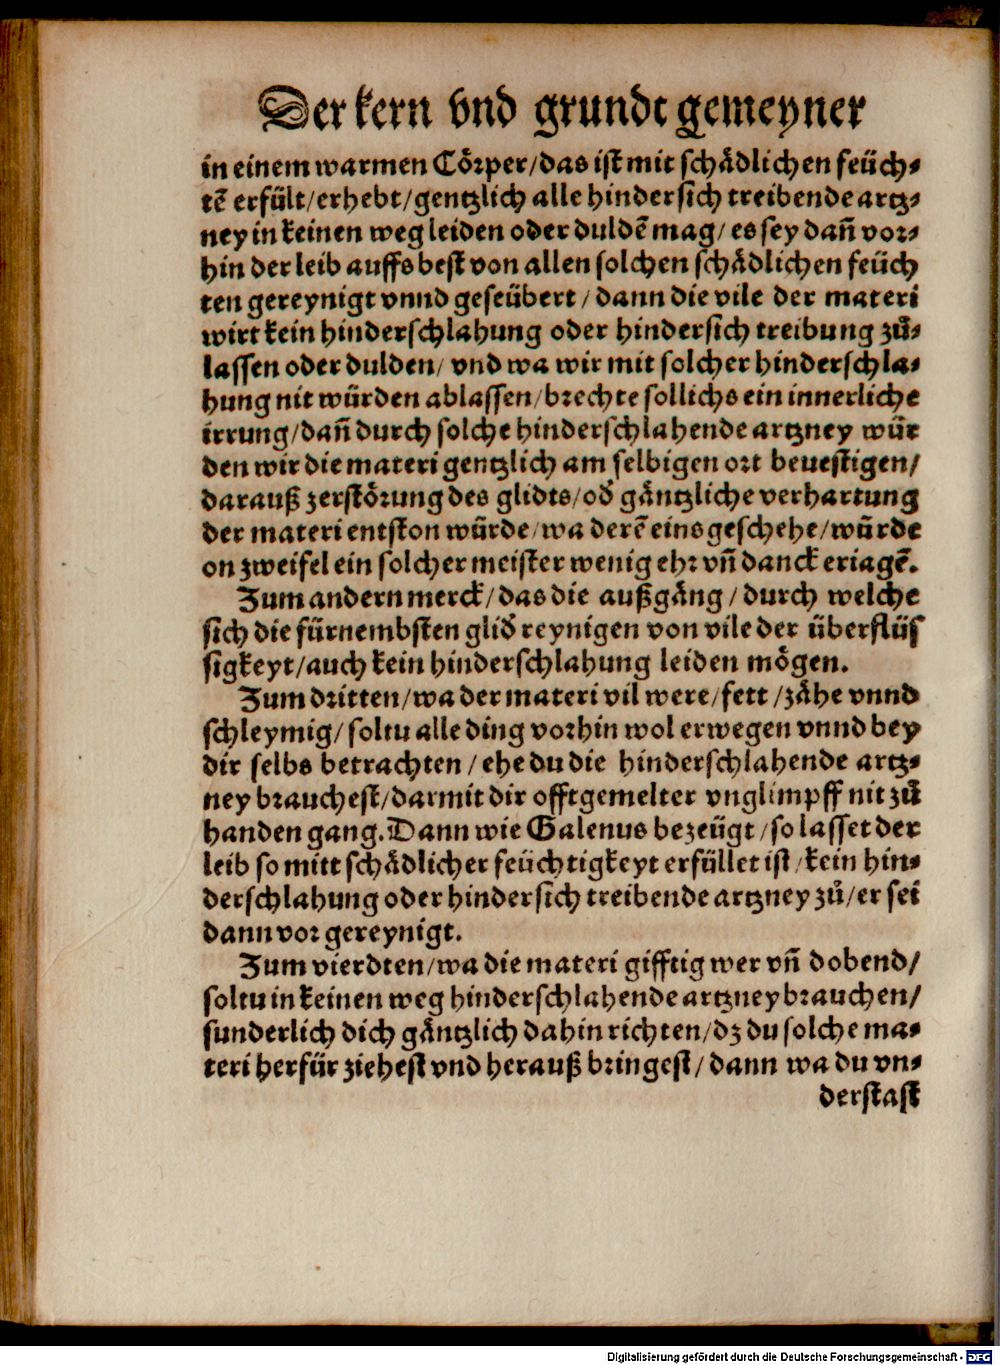 Der kern vnd grundt gemeyner
in einem warmen Cörper/das ist mit schädlichen feüch⸗
tẽ erfült/erhebt/gentzlich alle hindersich treibende artz⸗
ney in keinen weg leiden oder duldẽ mag/ es sey dañ vor⸗
hin der leib auffs best von allen solchen schädlichen feüch
ten gereynigt vnnd geseübert / dann die vile der materi
wirt kein hinderschlahung oder hindersich treibung zů⸗
lassen oder dulden/ vnd wa wir mit solcher hinderschla⸗
hung nit würden ablassen/brechte sollichs ein innerliche
irrung/dañ durch solche hinderschlahende artzney wür
den wir die materi gentzlich am selbigen ort beuestigen/
darauß zerstörung des glidts/od̕ gäntzliche verhartung
der materi entston würde/wa derẽ eins geschehe/würde
on zweifel ein solcher meister wenig ehr vñ danck eriagẽ.
Zum andern merck/das die außgäng / durch welche
sich die fürnembsten glid̕ reynigen von vile der überflüs
sigkeyt/auch kein hinderschlahung leiden mögen.
Zum dritten/wa der materi vil were/fett /zähe vnnd
schleymig/ soltu alle ding vorhin wol erwegen vnnd bey
dir selbs betrachten / ehe du die hinderschlahende artz⸗
ney brauchest/darmit dir offtgemelter vnglimpff nit zů
handen gang. Dann wie Galenus bezeügt /so lasset der
leib so mitt schädlicher feüchtigkeyt erfüllet ist/kein hin⸗
derschlahung oder hindersich treibende artzney zů/er sei
dann vor gereynigt.
Zum vierdten/wa die materi gifftig wer vñ dobend/
soltu in keinen weg hinderschlahende artzney brauchen/
sunderlich dich gäntzlich dahin richten/dz du solche ma⸗
teri herfür ziehest vnd herauß bringest/ dann wa du vn⸗
derstast
Digitalisierung gefördert durch die Deutsche Forschungsgemeinschaft - DFG